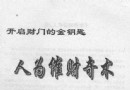 开启财门的金钥匙
人为催财奇术